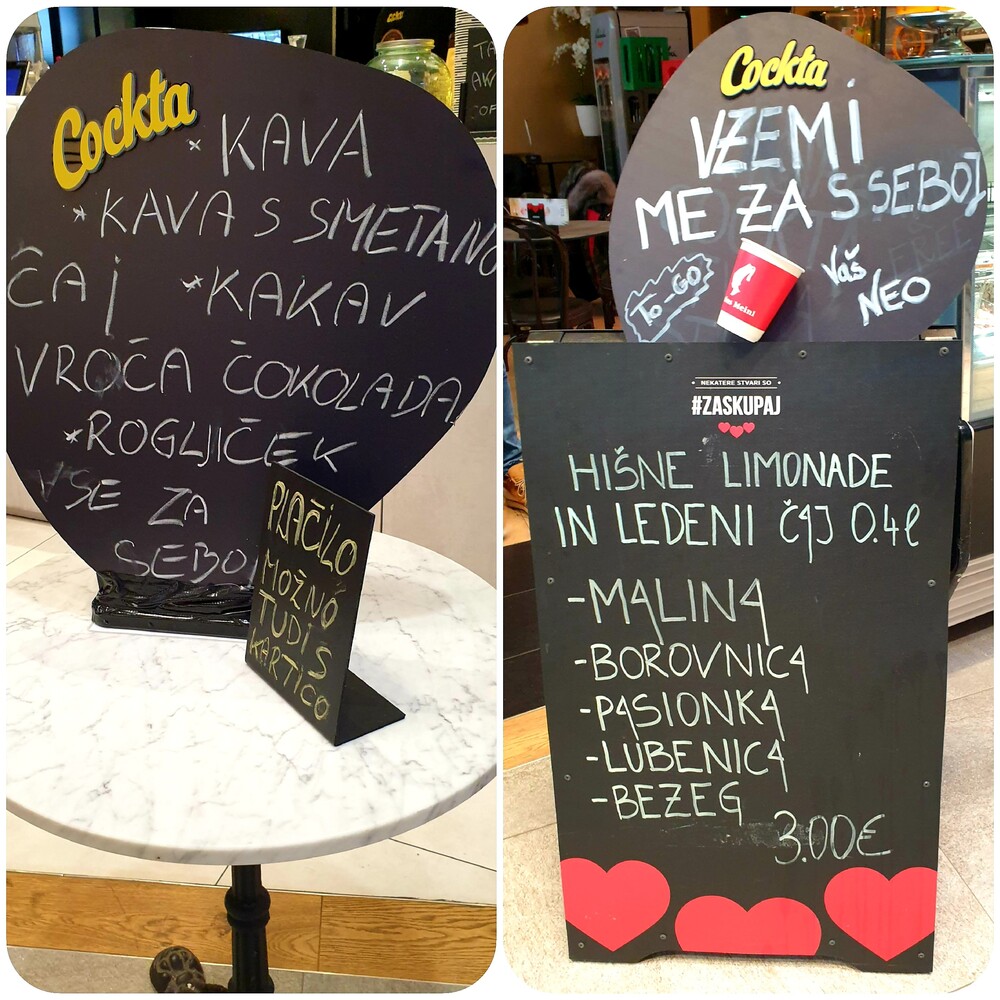 Cockta
* KAVA
* KAVA S SMETANO
ČAJ * KAKAV
VROČA ČOKOLADA
* ROGLJIČEK
VSE ZA
SEBO
PLAČILO
MOŽNO
TUDI S
KARTICO
Cockta
VZEMI
ME ZA S SEBOJ
TO-GO
Vaš
NEO
NEKATERE STVARI SO
#ZASKUPAJ
HIŠNE LIMONADE
IN LEDENI ČAJ 0.4l
-MALINA
-BOROVNICA
-PASIONKA
-LUBENICA
-BEZEG
3.00€